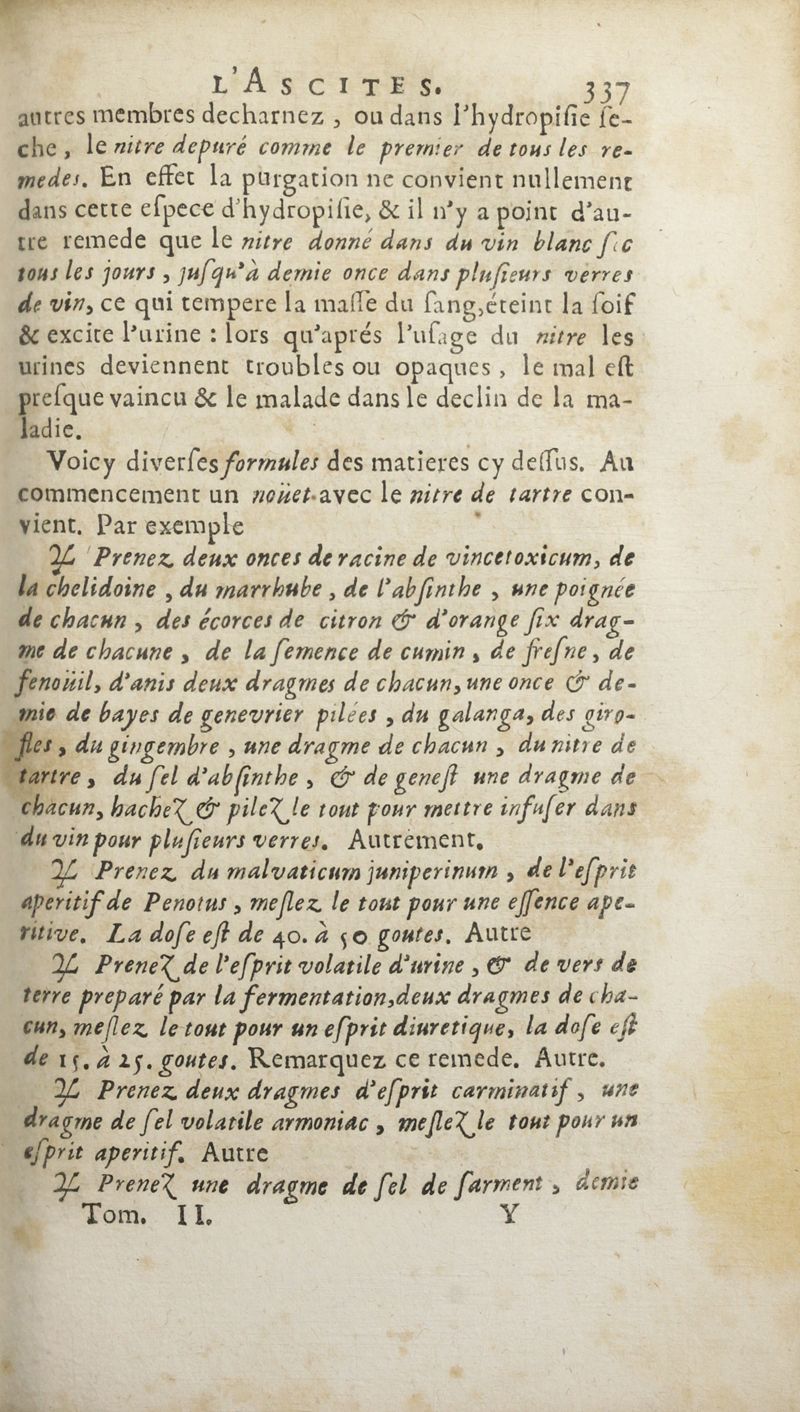 L'ASCITES. 337
autres membres decharnez , ou dans l'hydropisie se-
che , le nitre depuré comme le premier de tous les re-
medes. En effet la purgation ne convient nullement
dans cette espece d'hydropisie, & il n'y a point d'au-
tre remede que le nitre donné dans du vin blanc sec
tous les jours , jusqu'à demie once dans plusieurs verres
de vin, ce qui tempere la masse du sang,éteint la soif
& excite l'urine : lors qu'aprés l'usage du nitre les
urines deviennent troubles ou opaques , le mal est
presque vaincu & le malade dans le declin de la ma-
ladie.
Voicy diverses formules des matieres cy dessus. Au
commencement un noüet avec le nitre de tartre con-
vient. Par exemple
♃ Prenez deux onces de racine de vincetoxicum, de
la chelidoine , du marrhube , de l'absinthe , une poignée
de chacun , des écorces de citron & d'orange six drag-
me de chacune , de la semence de cumin , de fresne , de
fenoüil, d'anis deux dragmes de chacun, une once & de-
mie de bayes de genevrier pilées , du galanga, des giro-
fles , du gingembre , une dragme de chacun , du nitre de
tartre , du sel d'absinthe , & de genest une dragme de
chacun, hachez & pilez le tout pour mettre infuser dans
du vin pour plusieurs verres. Autrement.
♃ Prenez du malvaticum juniperinum , de l'esprit
aperitif de Penotus , meslez le tout pour une essence ape-
ritive. La dose est de 40. à 50 goutes. Autre
♃ Prenez de l'esprit volatile d'urine , & de vers de
terre preparé par la fermentation,deux dragmes de cha-
cun, meslez le tout pour un esprit diuretique, la dose est
de 15. à 25. goutes. Remarquez ce remede. Autre.
♃ Prenez deux dragmes d'esprit carminatif , une
dragme de sel volatile armoniac , meslez le tout pour un
esprit aperitif. Autre
♃ Prenez une dragme de sel de sarment , demie
Tom. II. Y